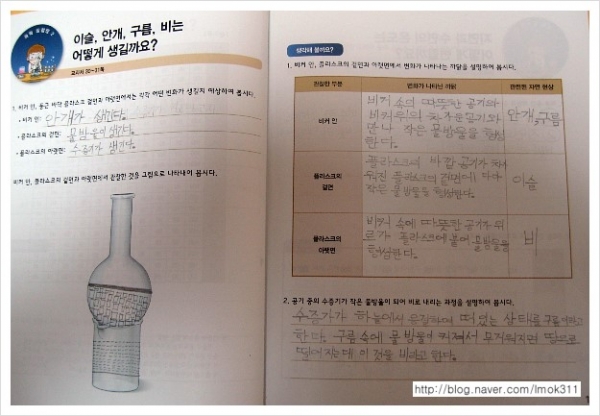 이슬, 안개, 구름, 비는
어떻게 생길까요?
교과서 30~31쪽
1. 비커 안, 둥근 바닥 플라스크 겉면과 아랫면에서는 각각 어떤 변화가 생길지 예상하여 봅시다.
• 비커 안: 안개가 생긴다.
• 플라스크의 겉면: 물방울이 생긴다.
• 플라스크의 아랫면: 수증기가 생긴다.
비커 안, 플라스크의 겉면과 아랫면에서 관찰한 것을 그림으로 나타내어 봅시다.
생각해 볼까요?
1. 비커 안, 플라스크의 겉면과 아랫면에서 변화가 나타나는 까닭을 설명하여 봅시다.
관찰한 부분 변화가 나타난 까닭 관련한 자연 현상
비커 안
비커 속의 따뜻한 공기와
비커위의 차가운공기와
만나 작은 물방울을 형성
한다.
안개,구름
플라스크의
겉면
플라스크의 바깥 공기가 차가
워진 플라스크의 겉면에 닿아
작은 물방울을 형성한다.
이슬
플라스크의
아랫면
비커 속에 따뜻한 공기가 위
로가 플라스크에 붙어 물방울을
형성한다.
비
2. 공기 중의 수증기가 작은 물방울이 되어 비로 내리는 과정을 설명하여 봅시다.
수증기가 하늘에서 응결하여 떠있는 상태를 구름이라고
한다. 구름 속에 물방울이 커져서 무거워지면 땅으로
떨어지는데 이것을 비라고 한다.
http://blog.naver.com/lmok311